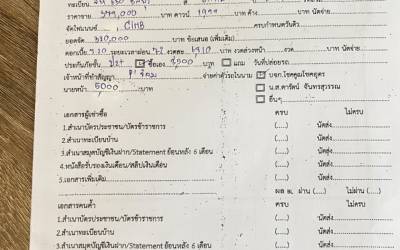 ราคาขาย 379,000 บาท ดาวน์ 1,999 บาท ค้าง บาท นัดจ่าย
จัดไฟแนนซ์ CIMB ครบกำหนดวันดิว
ยอดจัด บาท ข้อเสนอ (เพิ่มเติม)
ดอกเบี้ย ระยะเวลาผ่อน 72 งวดละ บาท งวดล่วงหน้า บาท นัดจ่าย
ประกันภัยชั้น ซื้อเอง บาท แถม วันที่ปล่อยรถ
เจ้าหน้าที่ทำสัญญา จ่ายค่าตัวรถในนาม บจก.โชคคูณโชคอุดร
นายหน้า 5000 บาท น.ส.ดารัตน์ จันทรสุวรรณ
อื่นๆ
เอกสารผู้เช่าซื้อ ครบ ไม่ครบ
1.สำเนาบัตรประชาชน/บัตรข้าราชการ (....) นัดส่ง
2.สำเนาทะเบียนบ้าน (....) นัดส่ง
3.สำเนาสมุดบัญชีเงินฝาก/Statement ย้อนหลัง 6 เดือน (....) นัดส่ง
4.หนังสือรับรองเงินเดือน/สลิปเงินเดือน (....) นัดส่ง
5.เอกสารเพิ่มเติม (....) นัดส่ง
ผ่าน (....) ไม่ผ่าน (....)
เอกสารคนค้ำ ครบ ไม่ครบ
1.สำเนาบัตรประชาชน/บัตรข้าราชการ (....) นัดส่ง
2.สำเนาทะเบียนบ้าน (....) นัดส่ง
3.สำเนาสมุดบัญชีเงินฝาก/Statement ย้อนหลัง 6 เดือน (....) นัดส่ง